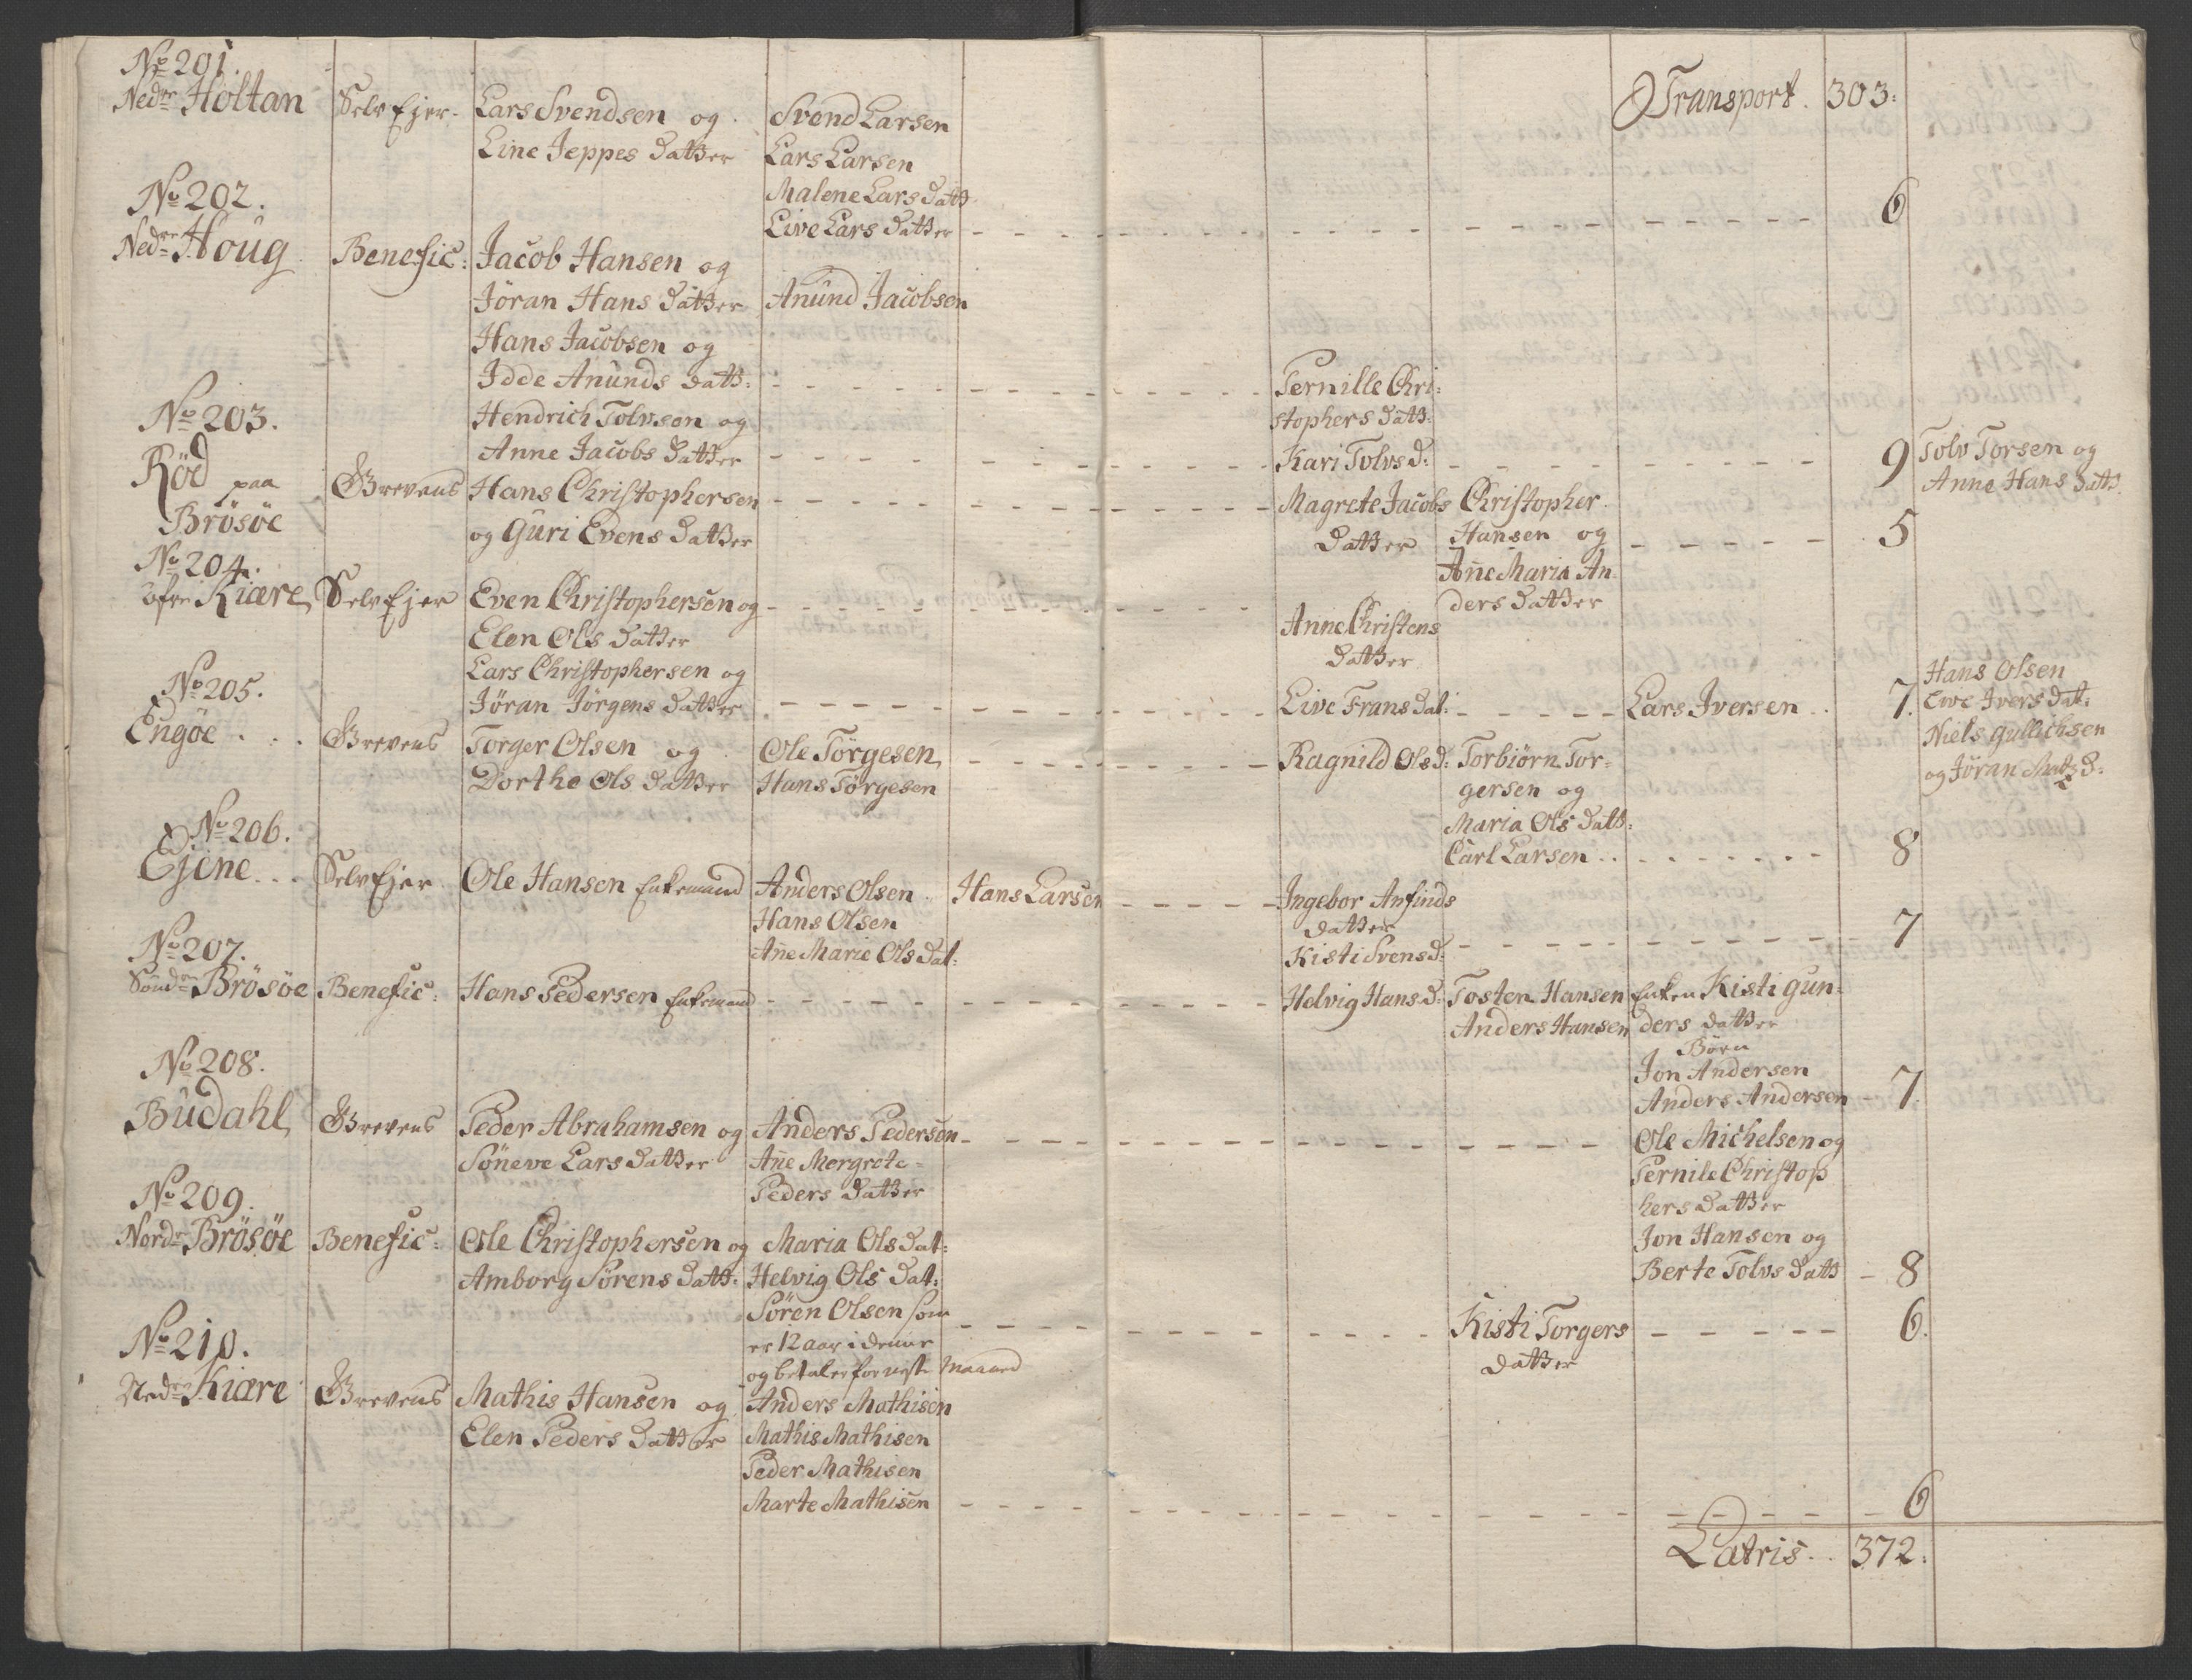 Transport. 303:
No 201.
Nedre Holtan Selv Ejer. Lars Svendsen og Svend Larsen
Line Jeppes Datter Lars Larsen
Malene Lars Datt
Live Lars Datter - - - 6
No 202.
Nedre Houg Benefic: Jacob Hansen og
Jöran Hans Datter Anund Jacobsen
Hans Jacobsen og
Idde Anunds Datt: - - - Pernille Chri:
stophers Datt:
Hendrich Tolvson og
Anne Jacobs Datter - - - Kari Tolvs D: - - - 9 Tolv Torsen og
Anne Hans Datt
No 203.
Röd paa
Brösöe Grevens Hans Christophersen - - - Magrete Jacobs Christopher
og Guri Evens Datter Datter Hansen og - - - 5
Añe Maria An
ders Datter
No 204.
Öfre Kiære Selv Ejer Even Christophersen og - - - Anne Christens
Elen Ols Datter Datter
Lars Christophersen og
Jöran Jörgens Datter - - - Live Frans Dat: - - - Lars Iversen . . 7. Hans Olsen
Ewe Ivers Dat:
Niels Gullichsen
og Jöran Matz D:
No 205.
Engöe . . . Grevens Torger Olsen og Ole Törgesen - - - Ragnild Ols D: Torbiörn Tor=
Dorthe Ols Datter Hans Törgesen gersen og
Maria Ols Datt:
Carl Larsen . . - - - 8
No 206.
Ejene . . . Selv Ejer Ole Hansen Enkemand Anders Olsen Hans Larsen - - - Ingebor Anfinds
Hans Olsen Datter
Añe Marie Ols Dat: Kisti Svens D: - - - 7
No 207.
Söndre Brösöe Benefic: Hans Pedersen Enkemand - - - Helvig Hans D: Tosten Hansen Enken Kisti Gun=
Anders Hansen ders Datter
Börn
Jon Andersen
Anders Andersen - 7.
No 208.
Budahl Grevens Peder Abrahamsen og Anders Pedersen - - - Ole Michelsen og
Söneve Lars Datter Añe Mergrete= Pernile Christop
Peders Datter hers Datter
Jon Hansen og
Berte Tolvs Datt - 8
No 209.
Nordre Brösöe Benefic: Ole Christophersen og Maria Ols Dat:
Amborg Sörens Datt: Helvig Ols Dat:
Sören Olsen som - - - Kisti Torgers - - - 6.
er 12 aar i denne Datter
og betaler for neste Maaned
No 210.
Nedre Kiære Grevens Mathis Hansen og Anders Mathisen
Elen Peders Datter Mathis Mathisen
Peder Mathisen
Marte Mathisen - - - 6
Latris . . 372.